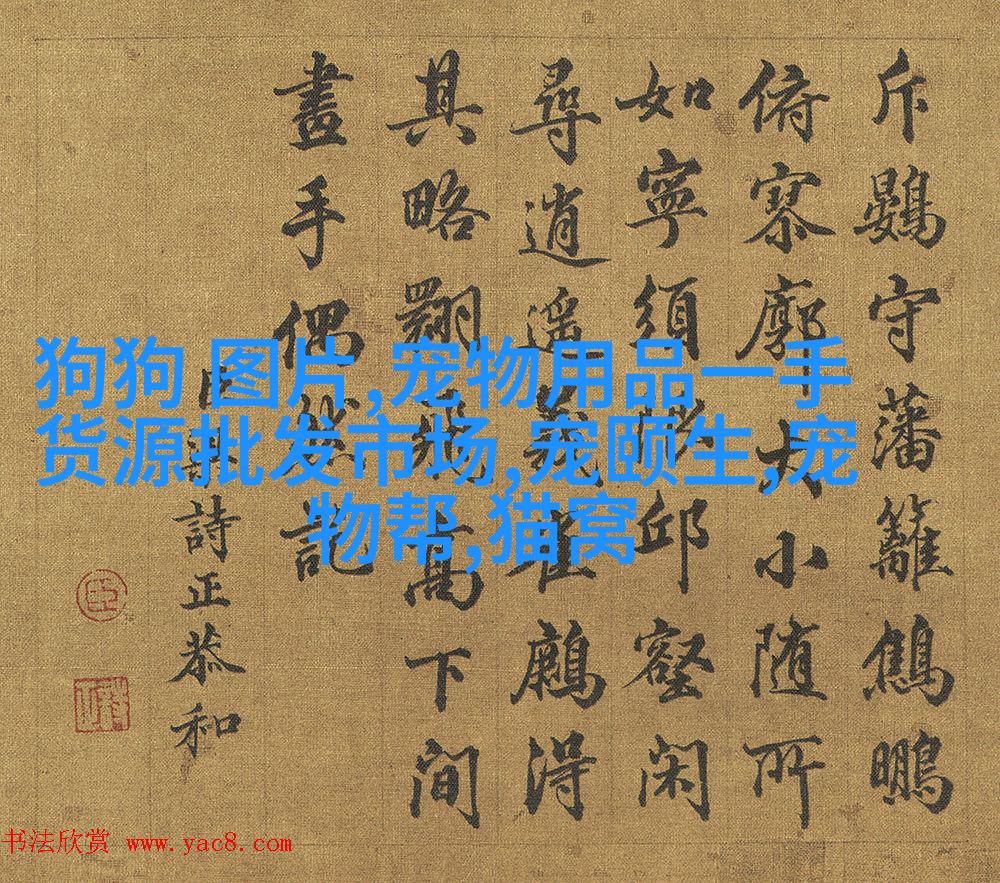 斥鷃守藩籬鷦鵬
俯寥廓大小随所
如寧須邱壑闲
尋逍遥義得
其略翾飛高下间
畫手偶然記
臣梁詩正恭和
臣
狗狗 图片,宠物用品一手
货源批发市场,宠颐生,宠
物帮,猫窝
书法欣赏 www.yac8.com